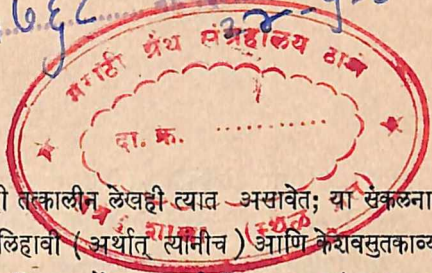 ७६८
मराठी ग्रंथ संग्रहालय ठाणे
दा. क्र. ............
ही तत्कालीन लेखही त्यात असावेत; या संकलना
लिहावी ( अर्थात् त्यांनीच ) आणि केशवसुतकाव्य
शाखा (स्थळ